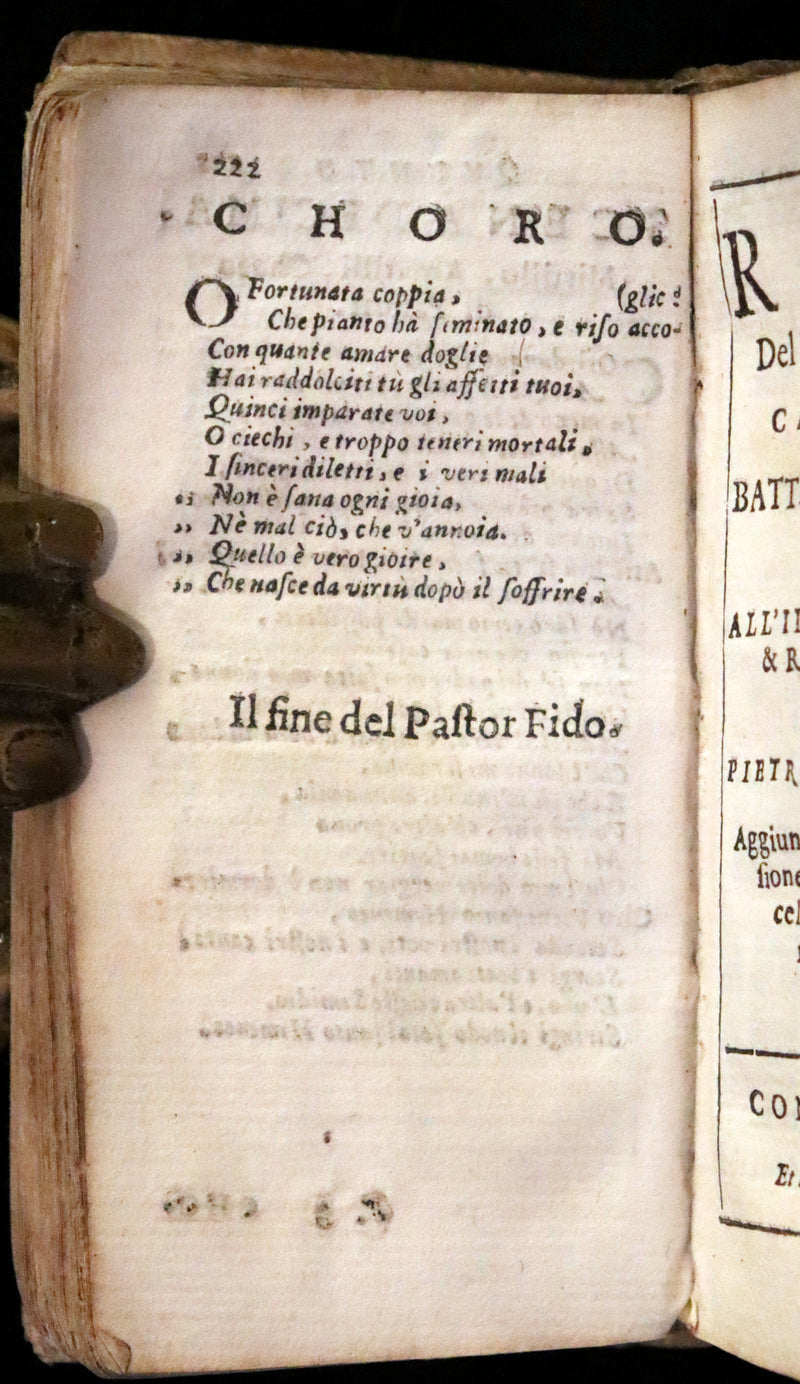 222
CHORO.
O Fortunata coppia, (glie!
Che pianto hà ſeminato, e riſo acco-
Con quante amare doglie
Hai raddolciti tù gli affetti tuoi,
Quinci imparate voi,
O ciechi, e troppo teneri mortali,
I ſinceri diletti, e i veri mali
Non è ſana ogni gioia,
,, Nè mal ciò, che v'annoia.
,, Quello è vero gioire,
,, Che naſce da virtù dopò il ſoffrire.
Il fine del Paſtor Fido.
R
Del
CA
BATT
ALL'I
& R
PIETR
Aggiun
ſione
cel
CON
Et